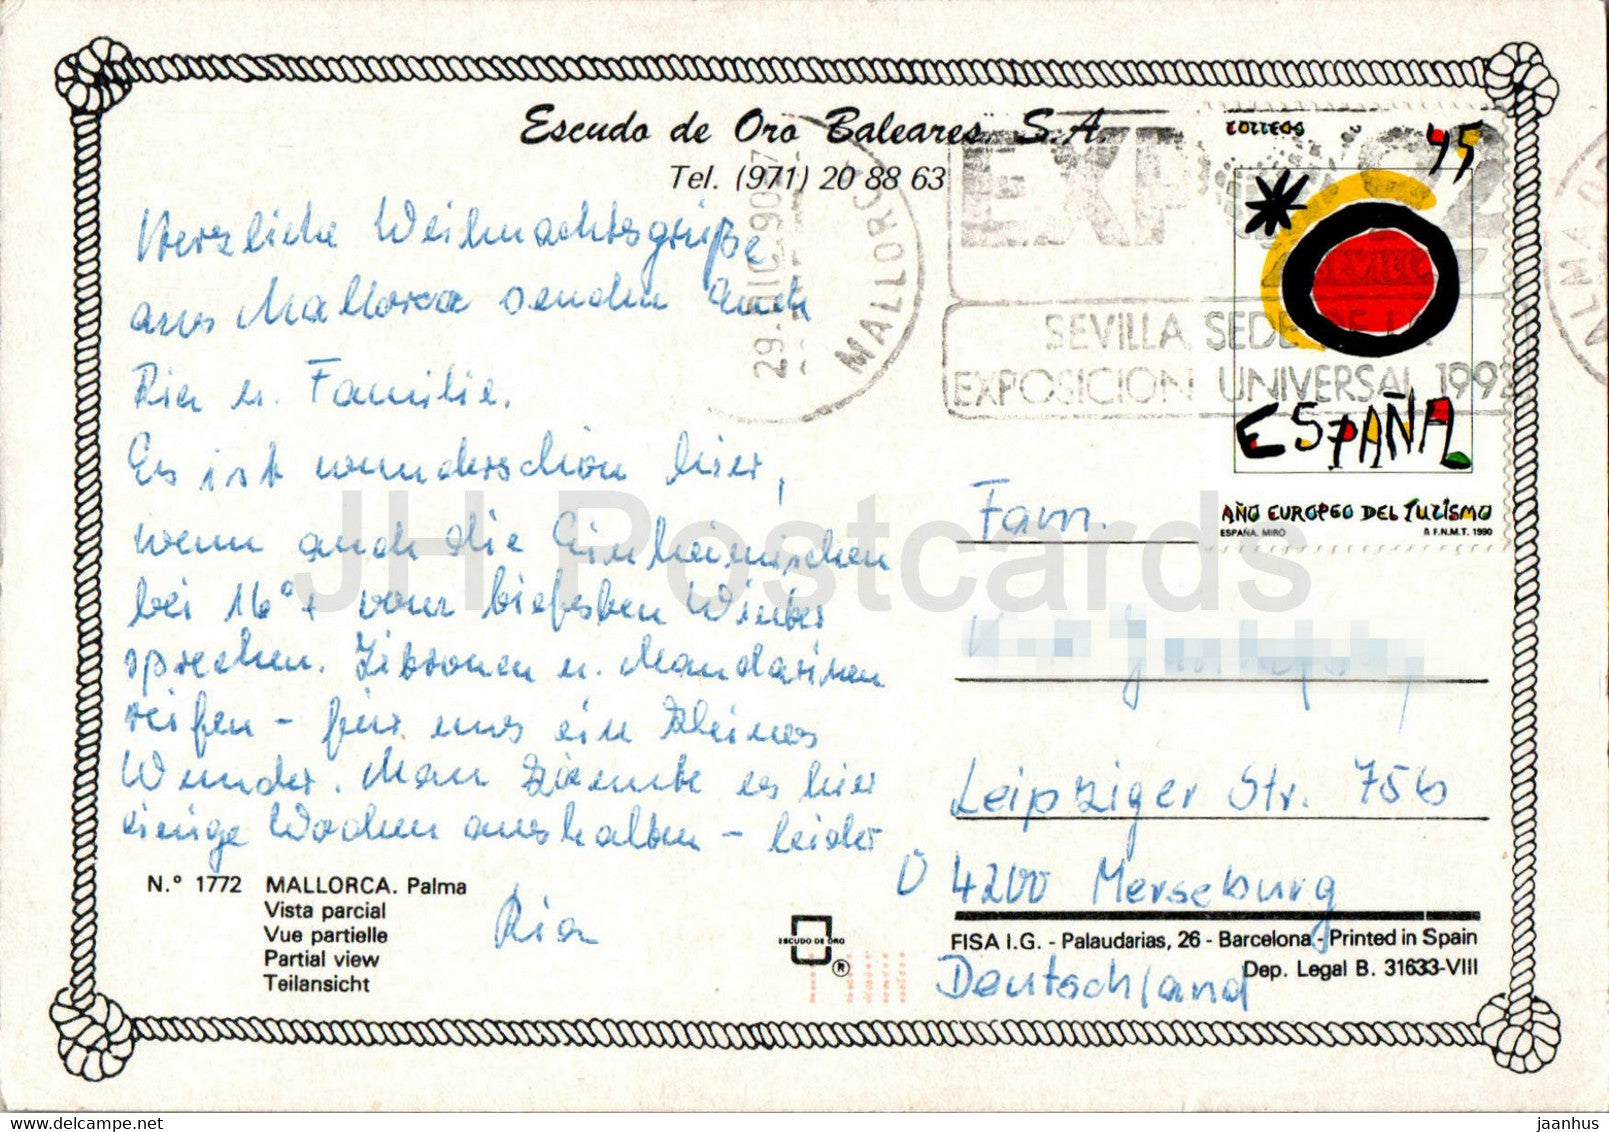 Escudo de Oro Baleares. S.A.
Tel. (971) 20 88 63
Herzliche Weihnachtsgrüße
aus Mallorca senden Euch
Ria u. Familie.
Es ist wunderschön hier,
wenn auch die Einheimischen
bei 16°+ vom tiefsten Winter
sprechen. Zitronen u. Mandarinen
reifen - für uns ein kleines
Wunder. Man könnte es hier
einige Wochen aushalten - leider
Ria
N.° 1772 MALLORCA. Palma
Vista parcial
Vue partielle
Partial view
Teilansicht
ESCUDO DE ORO
®
29. DIC. 90
MALLORCA
EXPO 92
SEVILLA
SEVILLA, SEDE DE LA
EXPOSICION UNIVERSAL 1992
PALMA DE
CORREOS
45
ESPAÑA
AÑO EUROPEO DEL TURISMO
ESPAÑA. MIRO F.N.M.T. 1990
Fam.
Leipziger Str. 75b
Ö 4200 Merseburg
Deutschland
FISA I.G. - Palaudarias, 26 - Barcelona - Printed in Spain
Dep. Legal B. 31633-VIII
JH Postcards
jaanhus